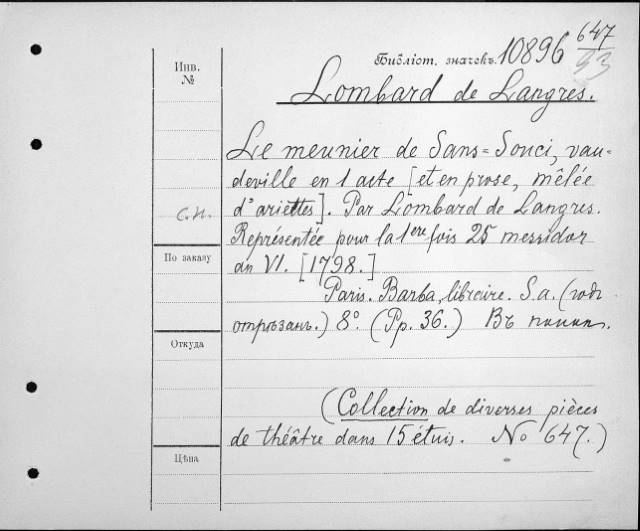 Инв.
№
Библіот. значекъ. 10896 647
93
Lombard de Langres.
Le meunier de Sans=Souci, vau-
deville en 1 acte [et en prose, mêlée
d'ariettes]. Par Lombard de Langres.
С.Н.
Représentée pour la 1ère fois 25 messidor
По заказу
an VI. [1798.]
Paris. Barba, libraire. S.a. (годъ
отрѣзанъ.) 8º. (Pp. 36.) Въ папкѣ.
Откуда
(Collection de diverses pièces
de théâtre dans 15 étuis. No 647.)
Цѣна